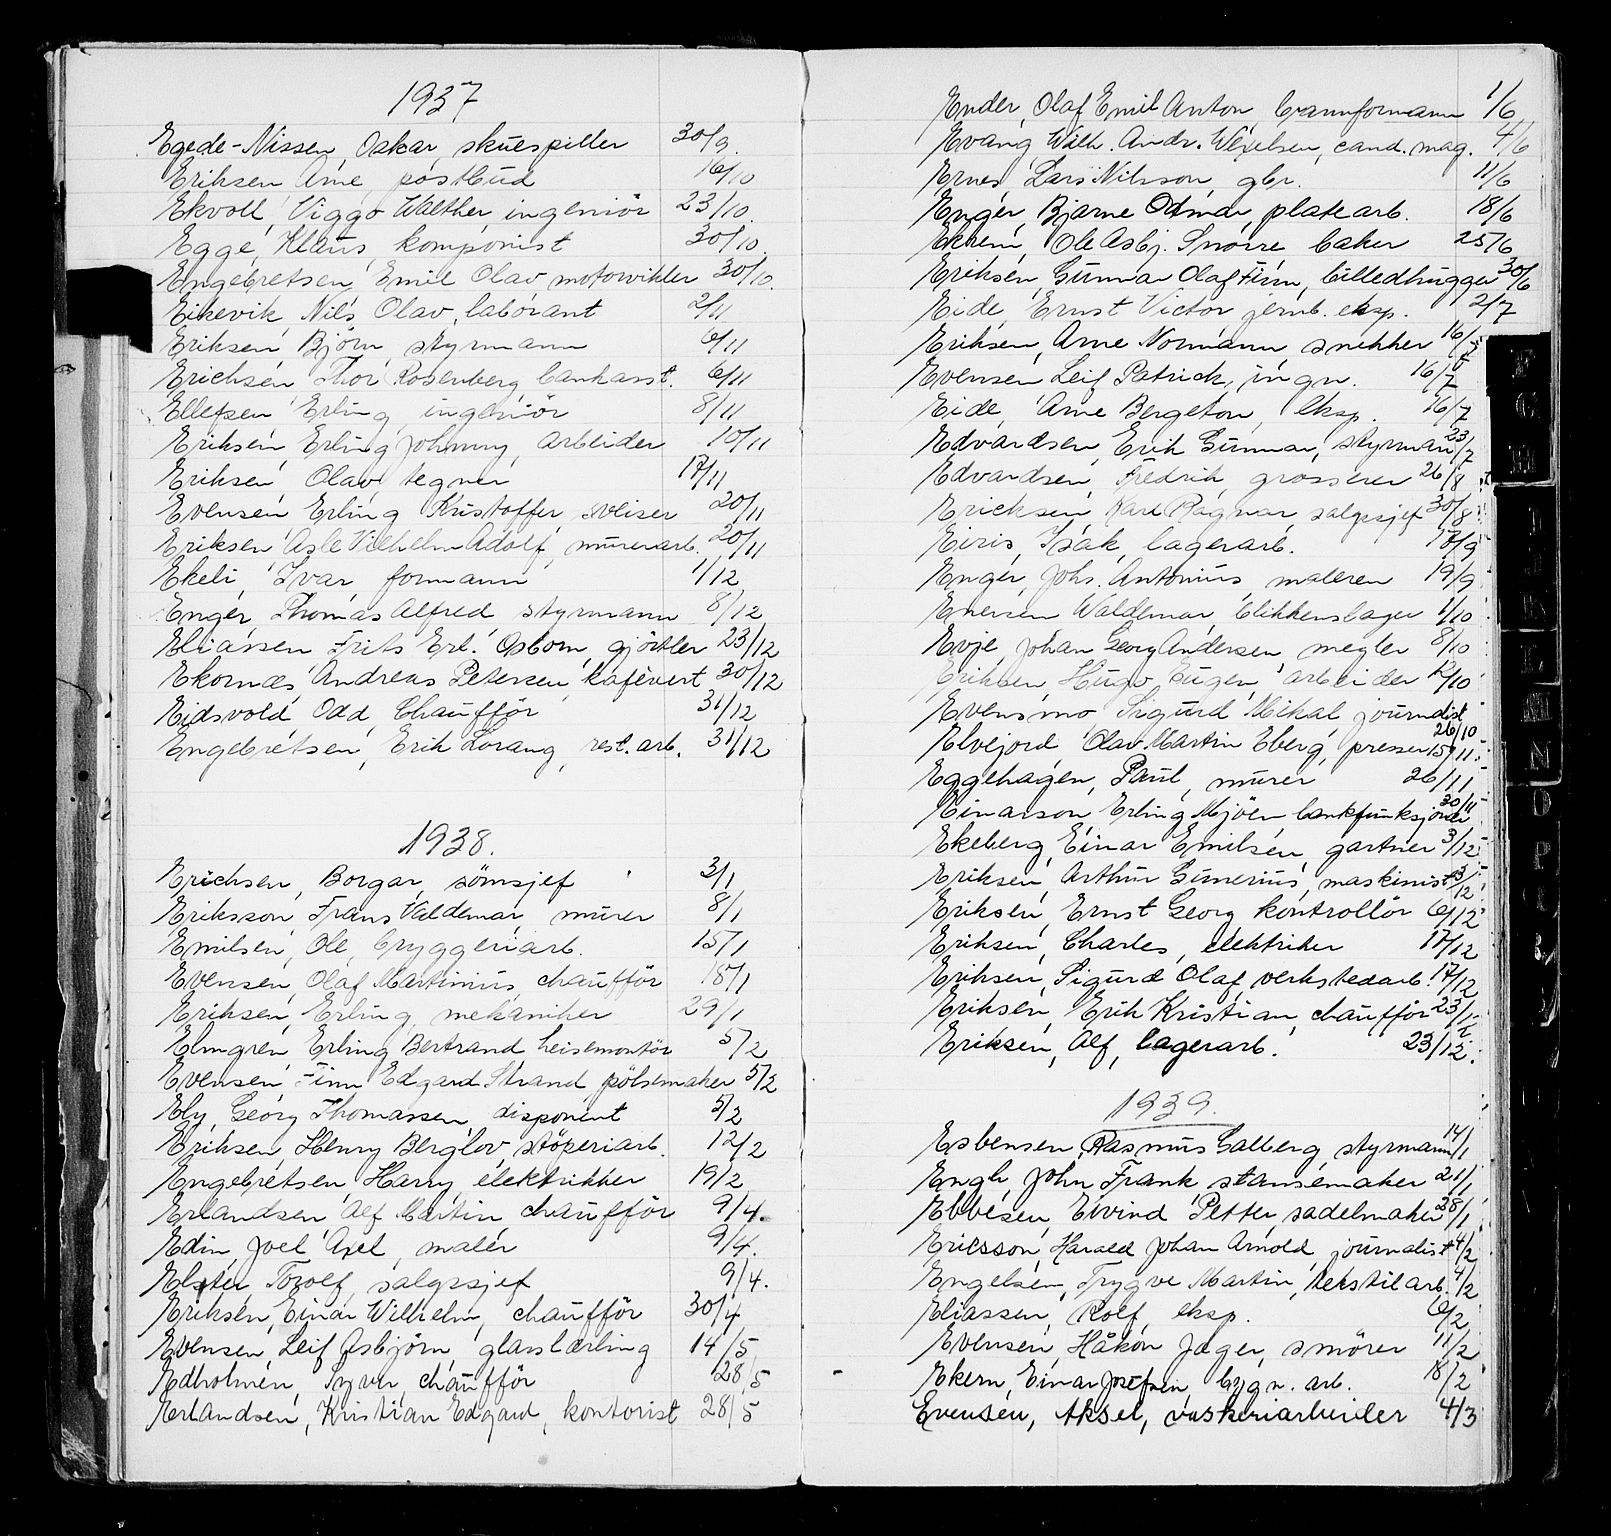 1937
Egede-Nissen, Oskar, skuespiller 30/9.
Eriksen Arne, postbud 16/10
Ekvoll, Viggo Walther, ingeniör 23/10.
Egge, Klaus, komponist 30/10.
Engebretsen, Emil Olav motorvikler 30/10.
Eikevik, Nils Olav, laborant 2/11
Eriksen, Björn, styrmann 6/11
Erichsen, Thor Rosenberg, bankasst. 6/11
Ellefsen, Erling, ingeniör 8/11
Eriksen, Erling Johnny, arbeider 10/11
Eriksen, Olav, tegner 17/11
Evensen, Erling Kristoffer, sveiser 20/11
Eriksen, Asle Vilhelm Adolf, murerarb. 20/11
Ekeli, Ivar, formann 1/12
Enger, Thomas Alfred, styrmann 8/12
Eliassen, Frits Erl. Osborn, gjörtler 23/12
Ekornæs, Andreas Petersen, kafévert 30/12
Eidsvold, Odd, Chaufför 31/12
Engebretsen, Erik Lorang, rest. arb. 31/12
1938.
Erichsen, Borgar, sömsjef 3/1
Eriksson, Frans Valdemar, murer 8/1
Emilsen, Ole, bryggeriarb. 15/1
Evensen, Olaf Martinius, chaufför 18/1
Eriksen, Erling, mekaniker 29/1
Elmgren, Erling Bertrand heismontör 5/2
Evensen, Finn Edgard Strand, pölsemaker 5/2
Ely, Georg Thomassen, disponent 5/2
Eriksen, Henry Berglov, stöperiarb. 12/2
Engebretsen, Harry, elektriker 19/2
Erlandsen, Alf Martin, chaufför 9/4.
Edin, Joel Axel, maler 9/4.
Elster, Torolf, salgssjef 9/4.
Eriksen, Einar Wilhelm, chaufför 30/4
Evensen, Leif Asbjörn, glasslærling 14/5
Edholmen, Syver, chaufför 28/5
Erlandsen, Kristian Edgard, kontorist 28/5
Ender, Olaf Emil Anton, brannformann 1/6
Evang, Wilh. Andr. Wexelsen, cand. mag. 4/6
Ernes, Lars Nilsson, gbr. 11/6
Enger, Bjarne Odmar, platearb. 18/6
Ekrem, Ole Asbj. Snorre baker 25/6
Eriksen, Gunnar Olaf Finn, billedhugger 30/6
Eide, Ernst Victor, jernb. eksp. 2/7
Eriksen, Arne Normann snekker 16/7
Evensen, Leif Patrick, ingn. 16/7
Eide, Arne Bergeton, eksp. 16/7
Edvardsen, Erik Gunnar, styrmann 23/7
Edvardsen, Fredrik, grosserer 26/8
Ericksen Karl Ragnar, salgssjef 30/8
Eiris, Isak, lagerarb. 10/9
Enger, Johs. Antonius, maleren 19/9
Enersen Waldemar, blikkenslager 1/10
Evje, Johan Georg Andersen, megler 8/10
Eriksen, Hugo Eugen, arbeider 12/10
Evensmo, Sigurd Mikal, journalist 26/10
Elvejord, Olav Martin Eberg, presser 15/11.
Eggehagen, Paul, murer 26/11
Einarson, Erling Mjöen, bankfunksjonær 30/11
Ekeberg, Einar Emilsen, gartner 3/12
Eriksen, Arthur Gunerius, maskinist 3/12
Eriksen, Ernst Georg kontrollör 6/12
Eriksen, Charles, elektriker 17/12
Eriksen, Sigurd Olaf, verkstedarb. 17/12
Eriksen, Erik Kristian, chaufför 23/12
Eriksen, Alf, lagerarb. 23/12.
1939.
Esbensen, Rasmus Galberg, styrmann 14/1
Engh, John Frank stansemaker 21/1
Ebbesen, Eivind Petter, sadelmaker 28/1
Ericsson, Harald Johan Arnold, journalist 4/2
Engelsen, Trygve Martin, tekstilarb. 4/2
Eliassen, Rolf, eksp. 6/2
Evensen, Håkon Jager, smörer 11/2
Ekern, Einar Josefsen, bygn. arb. 18/2
Evensen, Aksel, vaskeriarbeider 4/3
F
G
H
L
M
N
O
P